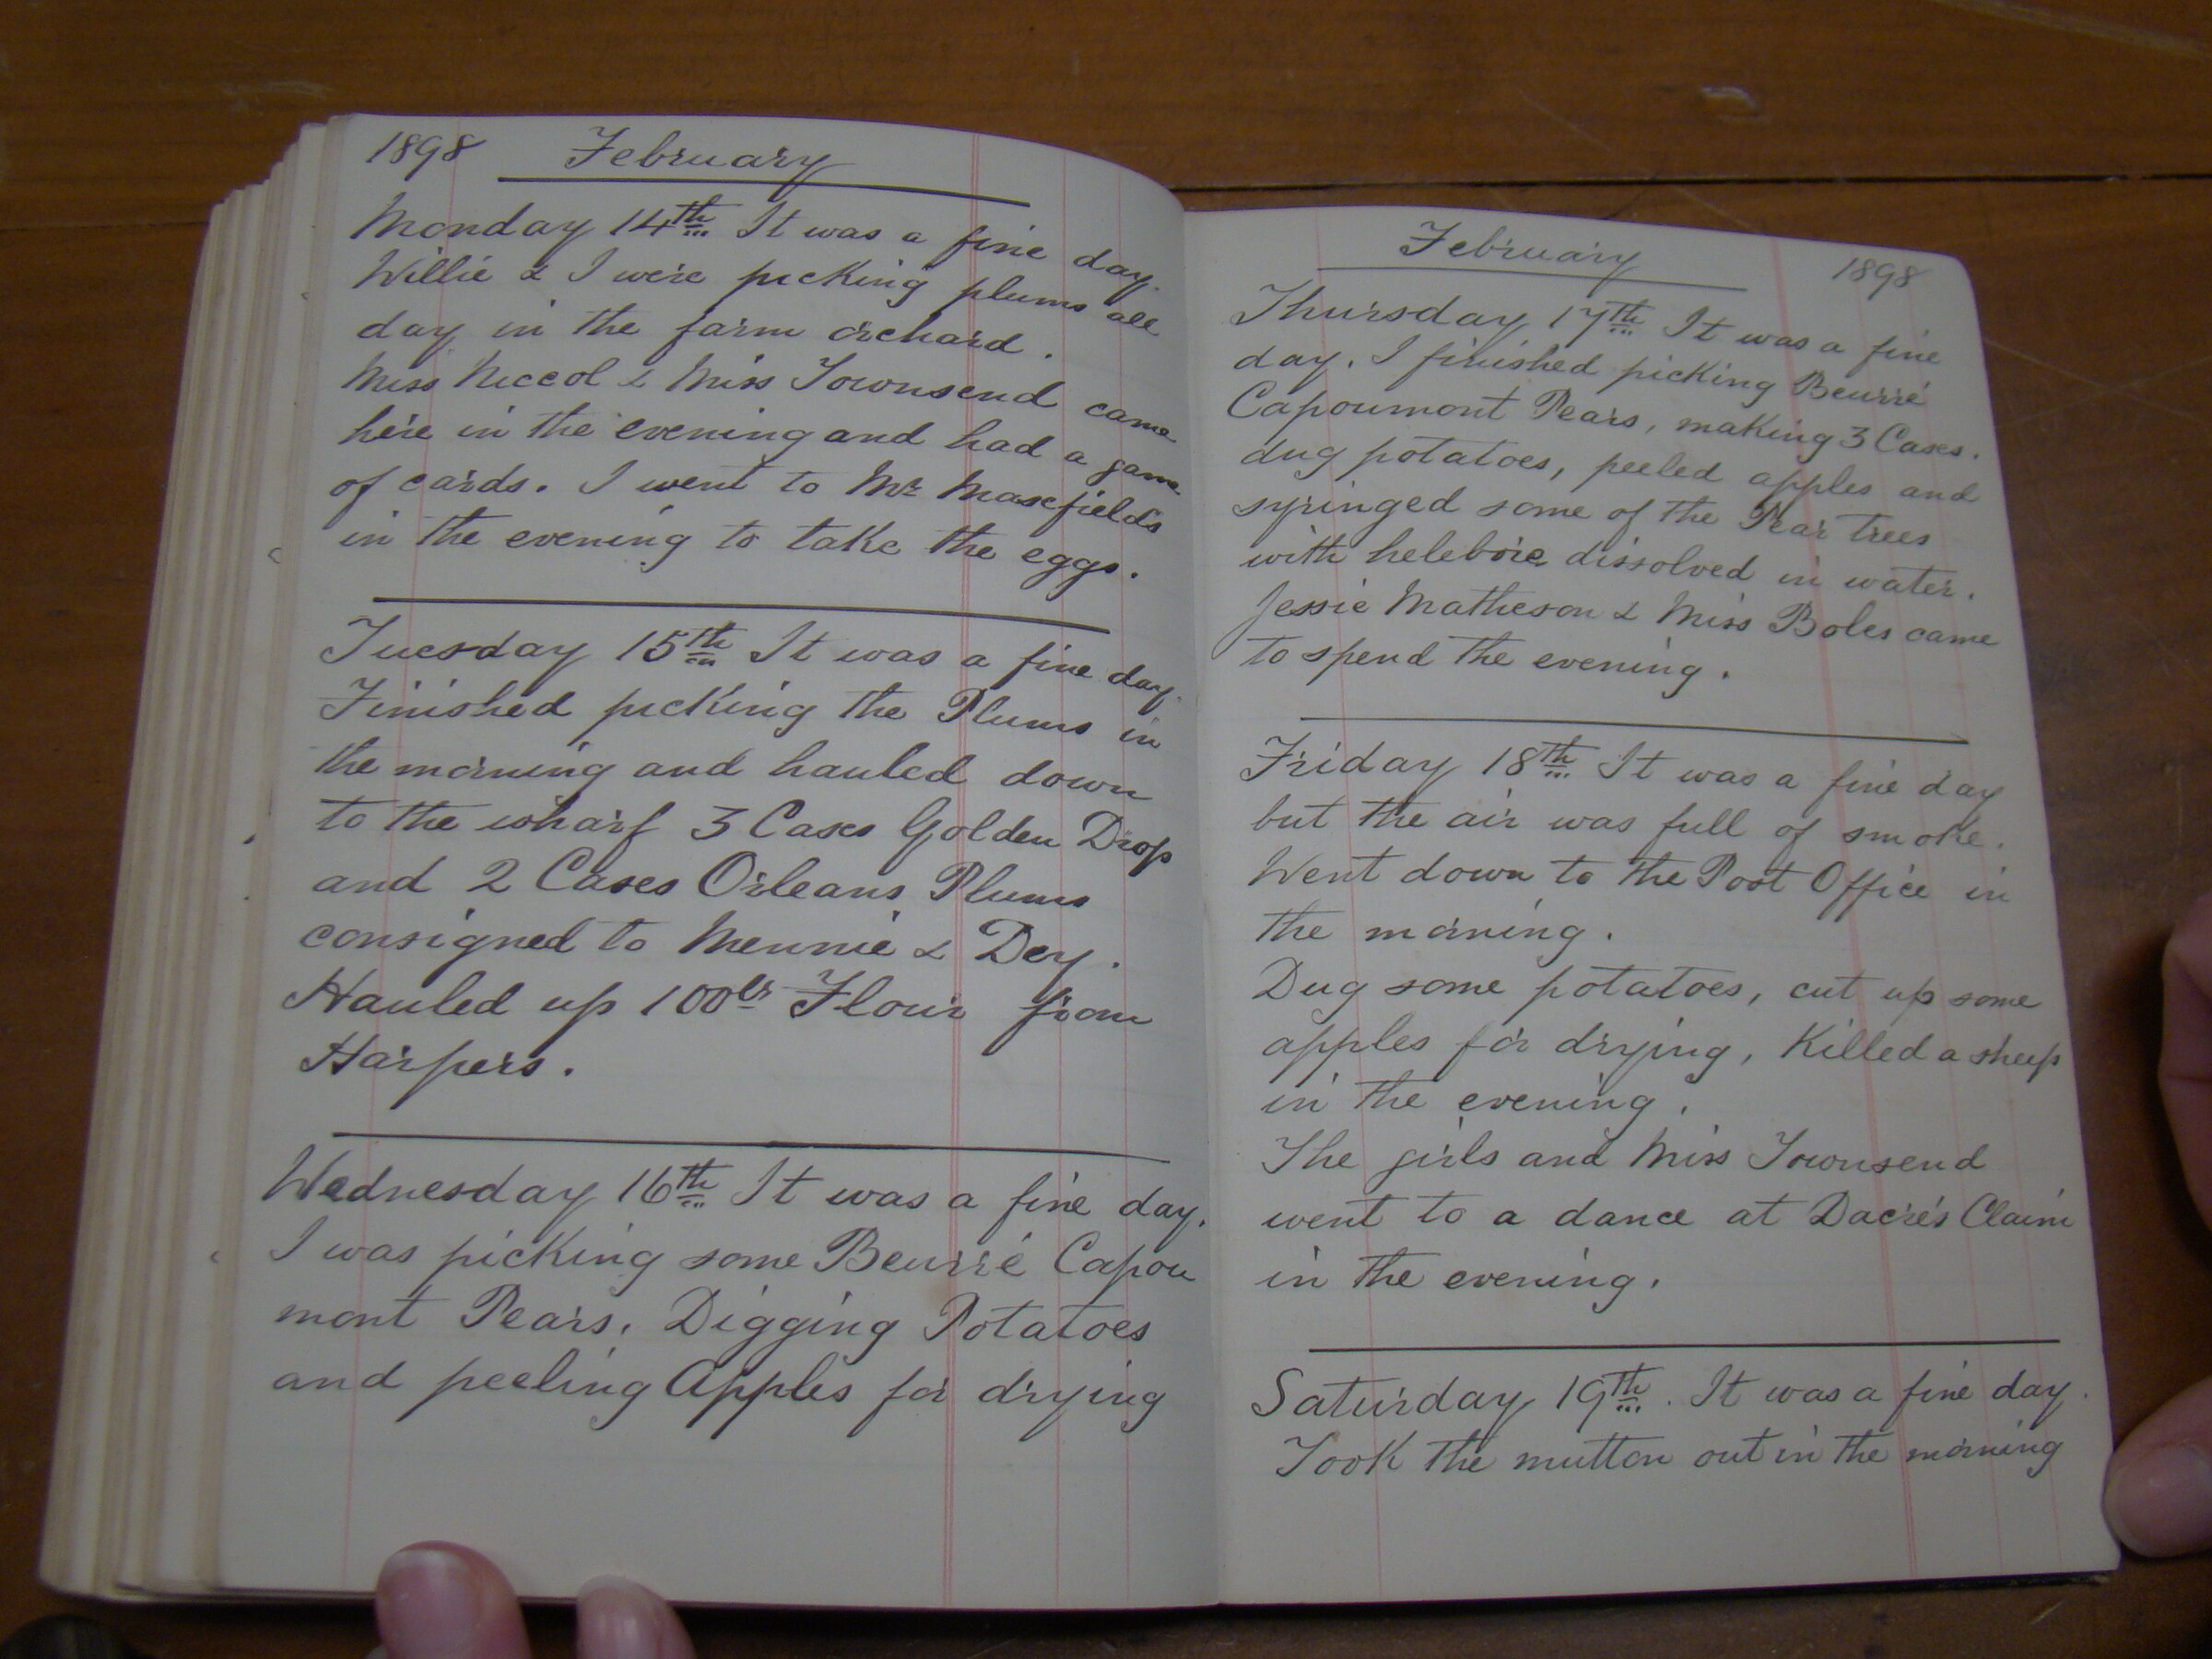 1898 February
Monday 14th It was a fine day.
Willie & I were picking plums all
day in the farm orchard.
Miss Niccol & Miss Townsend came
here in the evening and had a game
of cards. I went to Mr Masefields
in the evening to take the eggs.
Tuesday 15th It was a fine day.
Finished picking the Plums in
the morning and hauled down
to the wharf 3 Cases Golden Drop
and 2 Cases Orleans Plums
consigned to Mennie & Dey.
Hauled up 100lbs Flour from
Harpers.
Wednesday 16th It was a fine day.
I was picking some Beurré Capou
mont Pears. Digging Potatoes
and peeling Apples for drying
February 1898
Thursday 17th It was a fine
day. I finished picking Beurré
Capoumont Pears, making 3 Cases.
dug potatoes, peeled apples and
syringed some of the Pear trees
with helebore dissolved in water.
Jessie Matheson & Miss Boles came
to spend the evening.
Friday 18th It was a fine day
but the air was full of smoke.
Went down to the Post Office in
the morning.
Dug some potatoes, cut up some
apples for drying, Killed a sheep
in the evening.
The girls and Miss Townsend
went to a dance at Dacre's Claim
in the evening.
Saturday 19th. It was a fine day.
Took the mutton out in the morning